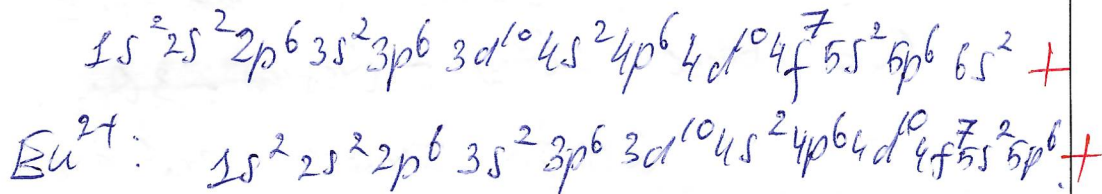 1s²2s²2p⁶3s²3p⁶3d¹⁰4s²4p⁶4d¹⁰4f⁷5s²5p⁶6s² +
Eu²⁺: 1s²2s²2p⁶3s²3p⁶3d¹⁰4s²4p⁶4d¹⁰4f⁷5s²5p⁶. +